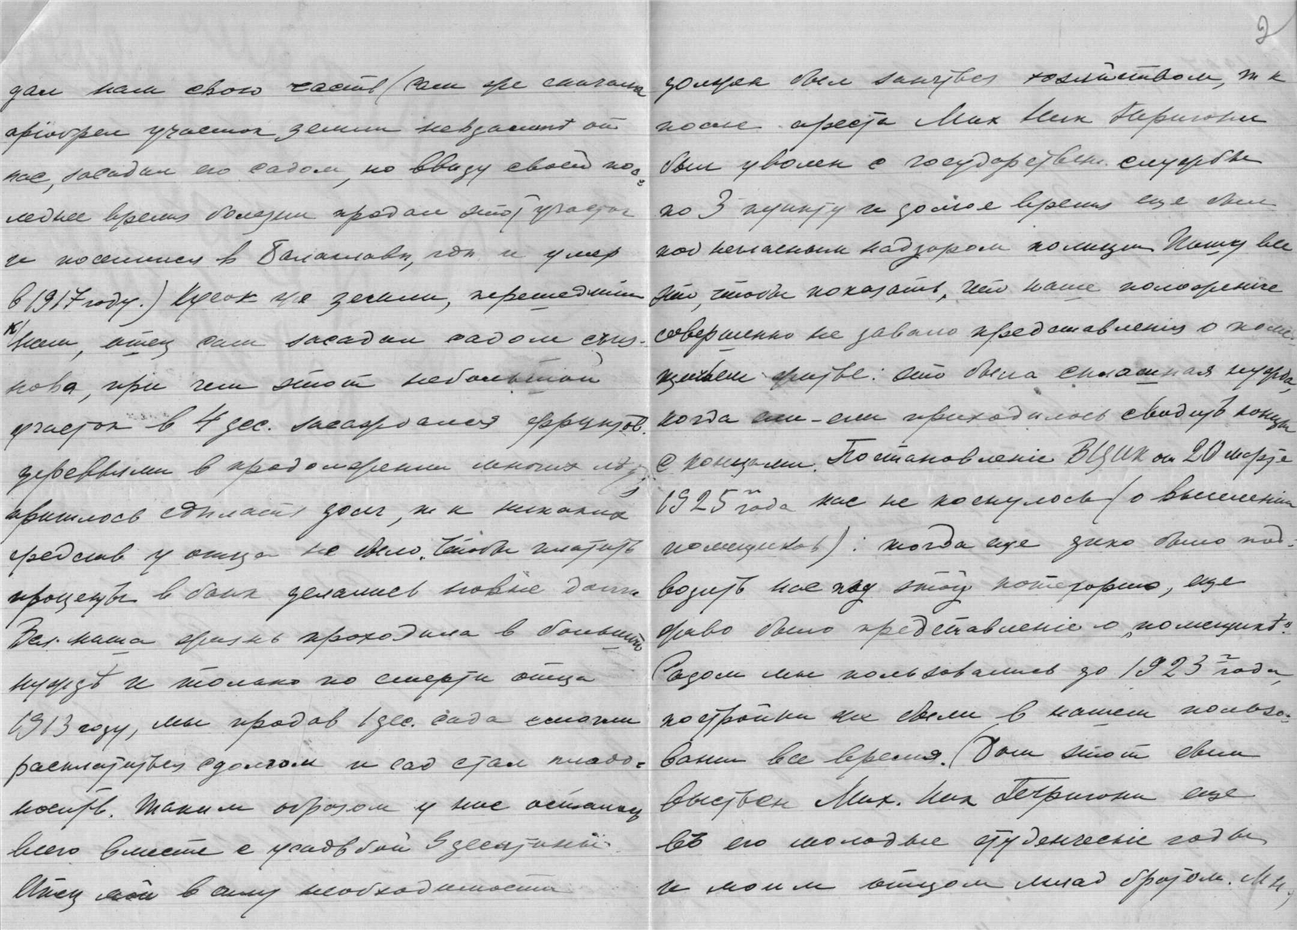 2
дал нам свою часть (сам же сначала
приобрел участок земли невдалекѣ от
нас, засадил его садом, но ввиду своей пос=
леднее время болезни продал этот участок
и поселился в Балаклавѣ, гдѣ и умер
в 1917 году.) Кусок же земли, перешедший
к нам, отец сам засадил садом съиз-
нова, при чем этот небольшой
участок в 4 дес. засаждался фруктов.
деревьями в продолжении многих лѣт,
пришлось сдѣлать долг, т к никаких
средств у отца не было. Чтобы платить
проценты в банк делались новые долги
Вся наша жизнь проходила в большой
нуждѣ и только по смерти отца
1913 году, мы продав 1 дес. сада смогли
расплатиться с долгом и сад стал плодо-
носить. Таким образом у нас осталось
всего вместе с усадьбой 9 десятин.
Отец мой в силу необходимости
должен был заняться хозяйством, т к
после ареста Мих Ник Тригони
был уволен с государствен. службы
по 3 пункту и долгое время еще был
под негласным надзором полиции. Пишу все
это, чтобы показать, что наше положение
совершенно не давало представления о поме-
щичьем житье: это была сплошная нужда,
когда еле-еле приходилось сводить концы
с концами. Постановленіе ВЦИК от 20 марта
1925 г года нас не коснулось (о выселении
помещиков): тогда еще дико было под-
водить нас под эту категорию, еще
живо было представленіе о „помещикѣ".
Садом мы пользовались до 1923 г года,
постройки же были в нашем пользо-
вании все время. (Дом этот был
выстроен Мих. Ник Тригони еще
въ его молодые студенческіе годы
и моим отцом млад братом. М Н.,